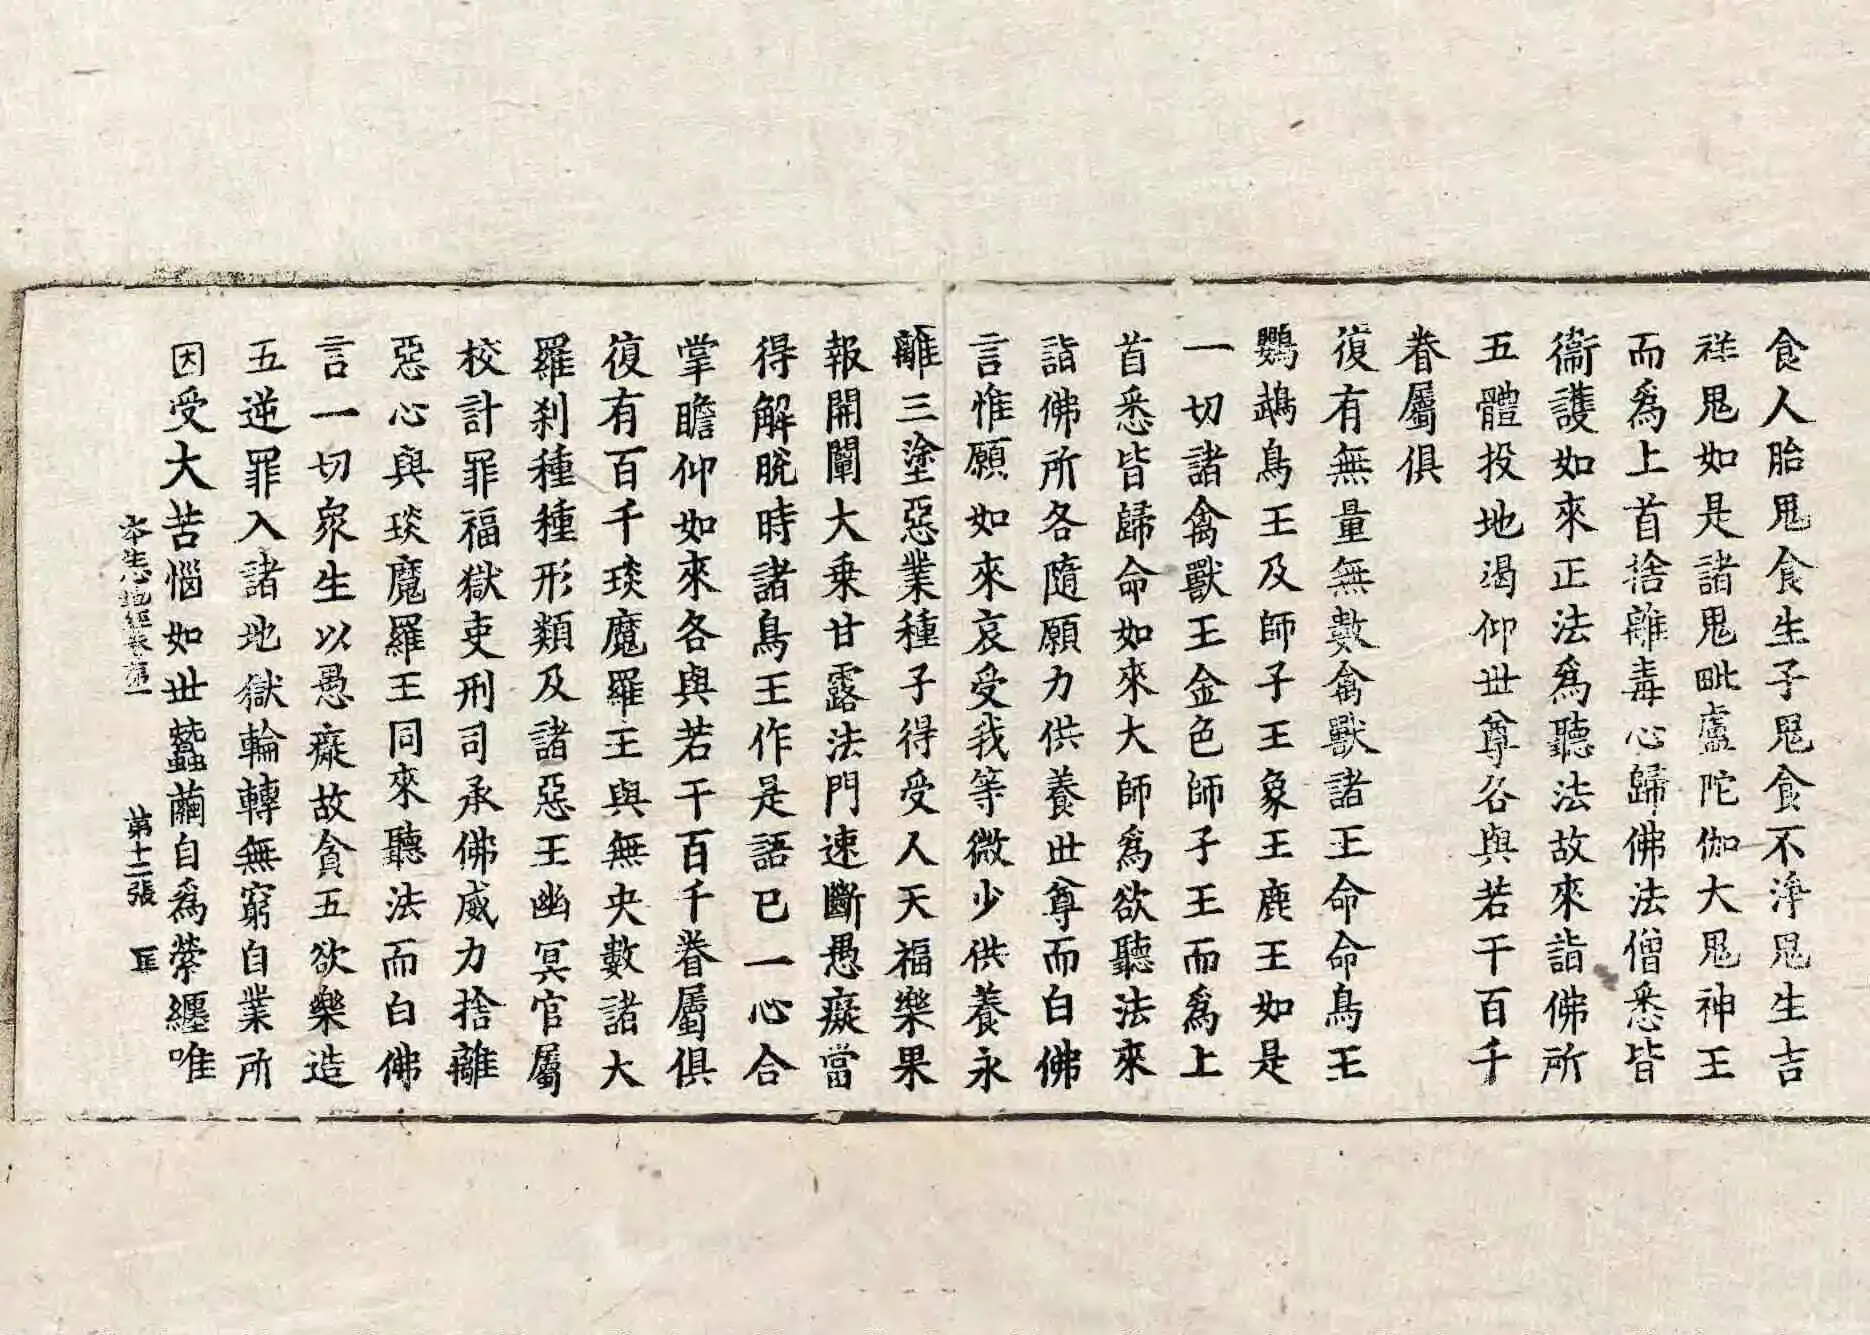 食人胎鬼食生子鬼食不淨鬼生吉
祥鬼如是諸鬼毗盧陀伽大鬼神王
而爲上首捨離毒心歸佛法僧悉皆
衞護如來正法爲聽法故來詣佛所
五體投地渴仰世尊各與若干百千
眷屬俱
復有無量無數禽獸諸王命命鳥王
鸚鵡鳥王及師子王象王鹿王如是
一切諸禽獸王金色師子王而爲上
首悉皆歸命如來大師爲欲聽法來
詣佛所各隨願力供養世尊而白佛
言惟願如來哀受我等微少供養永
離三塗惡業種子得受人天福樂果
報開闡大乗甘露法門速斷愚癡當
得解脫時諸鳥王作是語已一心合
掌瞻仰如來各與若干百千眷屬俱
復有百千琰魔羅王與無央數諸大
羅刹種種形類及諸惡王幽冥官屬
校計罪福獄吏刑司承佛威力捨離
惡心與琰魔羅王同來聽法而白佛
言一切衆生以愚癡故貪五欲樂造
五逆罪入諸地獄輪轉無窮自業所
因受大苦惱如世蠶繭自爲縈纏唯
本生心地經卷第一 第十二張